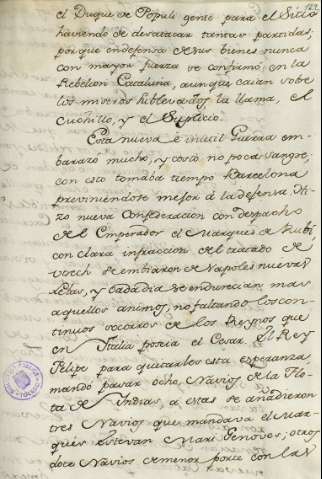 122
el Duque de Populi gente para el Sitio
haviendo de desatacar tantas partidas,
porque indefensa de sus bienes nunca
con mayor fuerza se confirmó en la
Rebelion Cataluña, aunque caian sobre
los miseros sublevados, la llama, el
Cuchillo, y el Suplicio.
Esta nueva è inutil Guerra em-
barazó mucho, y costó no poca sangre,
con esto tomaba tiempo Barcelona
previniendose mejor à la defensa. Hi-
zo nueva Confederacion con despacho
del Emperador el Marques de Rubi
con clara infraccion del tratado de
Utrech se embiaron de Napoles nuevas
y cada dia se endurecian mas
aquellos animos, no faltando los con-
tinuos socorros de los Reynos que
en Italia poseia el Cesar. El Rey
Felipe para quitarles esta esperanza,
mandó pasar ocho Navios de la Flo-
ta de Indias, a estas se añadieron
tres Navios que mandava el Mar-
qués Estevan Mari Genoves; otros
doce Navios de menor porte con las